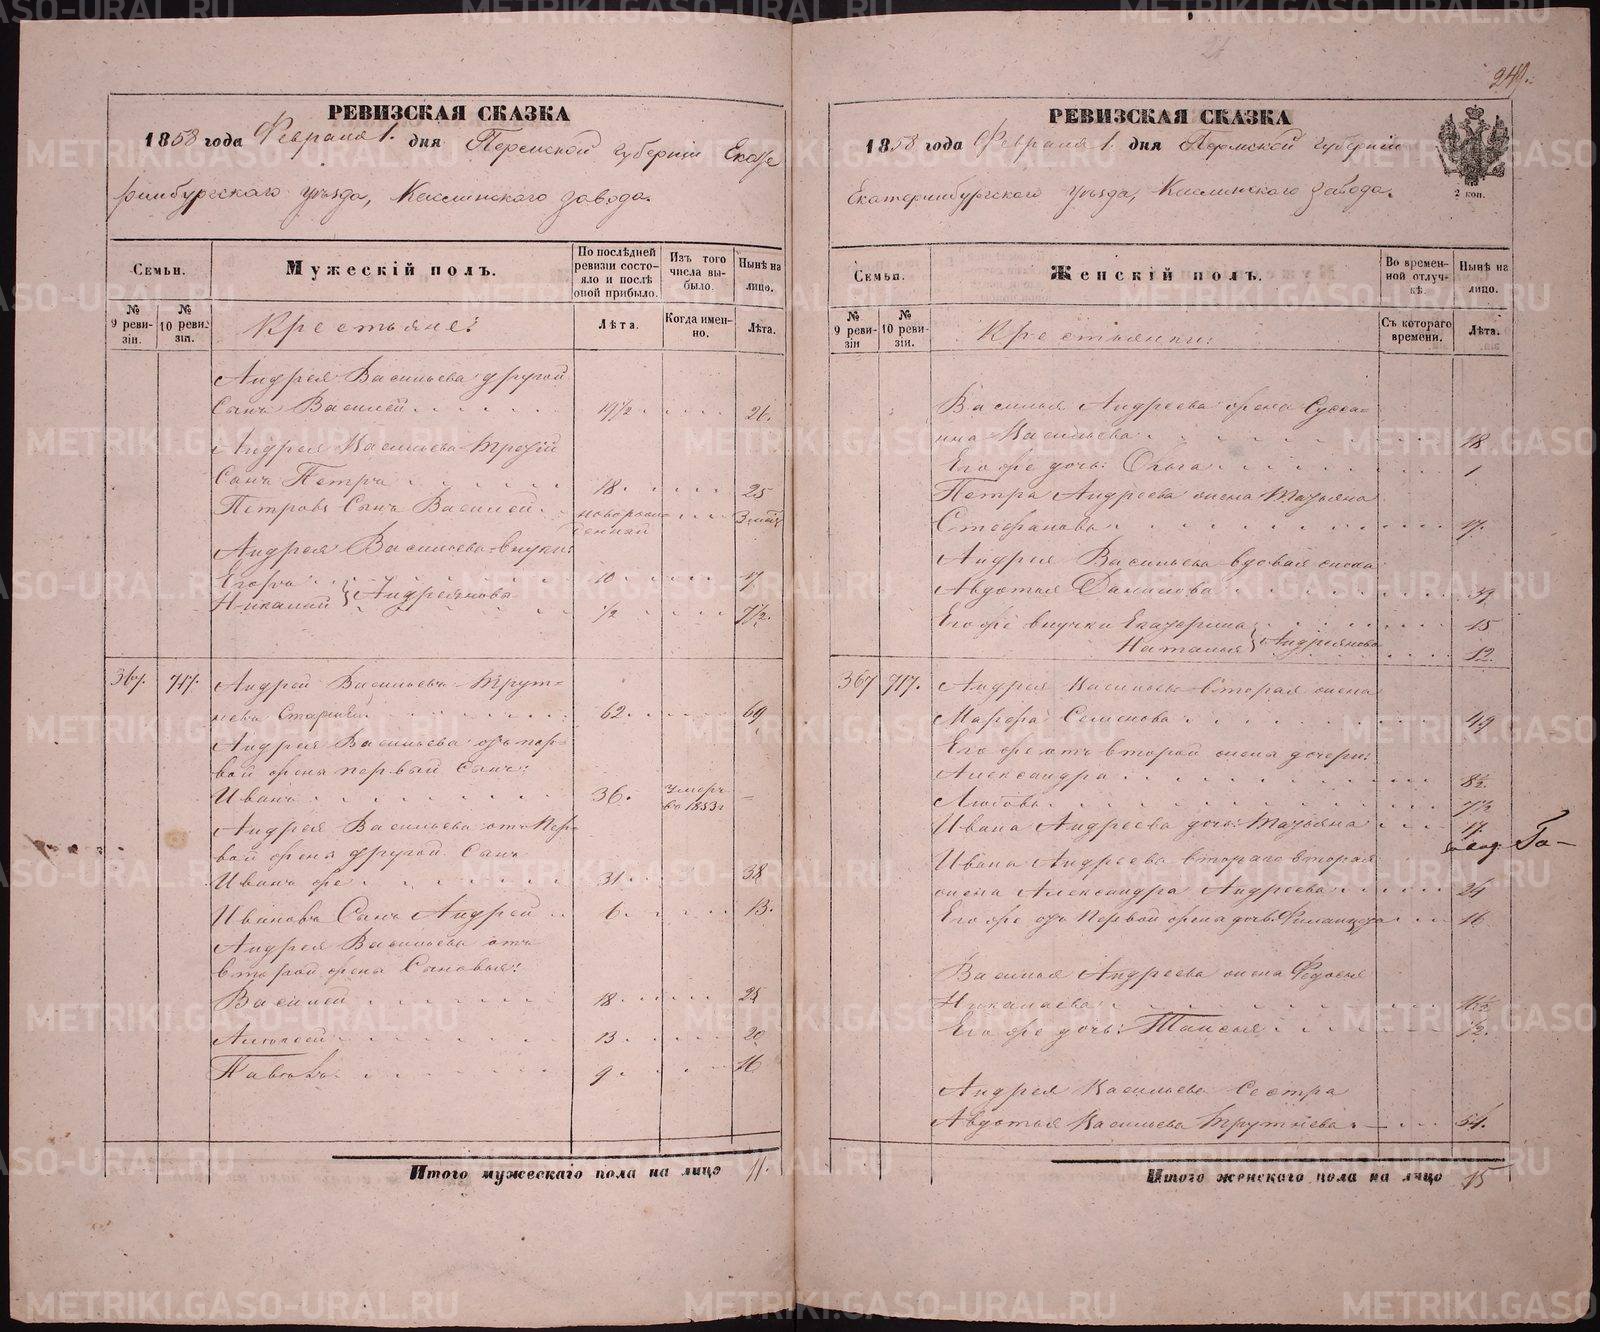 РЕВИЗСКАЯ СКАЗКА
1858 года Февраля 1. дня Пермской губерніи Екате
ринбургскаго уѣзда, Каслинскаго завода.
Семьи.
Мужескій полъ.
По послѣдней ревизіи состояло и послѣ оной прибыло.
Изъ того числа выбыло.
Нынѣ на лицо.
№ 9 ревизіи.
№ 10 ревизіи.
Крестьяне:
Лѣта.
Когда именно.
Лѣта.
Андрея Васильева другой
Сынъ Василей 19½ 26.
Андрея Васильева Третій
Сынъ Петръ 18. 25
Петровъ Сынъ Василей новорож-
денный
Андрея Васильева внуки:
Егоръ 10 17
Николай } Андреянова ½ 7½.
367. 717. Андрей Васильевъ Трут-
невъ Старшій 62. 69
Андрея Васильева отъ пер-
вой жены первый Сынъ:
Иванъ 36. умеръ въ 1853 г —
Андрея Васильева отъ Пер-
вой жены другой Сынъ
Иванъ же 31. 38
Ивановъ Сынъ Андрей 6. 13.
Андрея Васильева отъ
второй жены Сыновья:
Василей 18. 25
Алексей 13. 20
Павелъ 9. 16
Итого мужескаго пола на лицо 11.
249.
РЕВИЗСКАЯ СКАЗКА
1858 года Февраля 1. дня Пермской губерніи
Екатеринбургскаго уѣзда, Каслинскаго завода.
2 коп.
Семьи.
Женскій полъ.
Во временной отлучкѣ.
Нынѣ на лицо.
№ 9 ревизіи
№ 10 ревизіи.
Крестьянки:
Съ котораго времени.
Лѣта.
Василья Андреева жена Суса-
нна Васильева 18
Его же дочь: Ольга 1
Петра Андреева жена Татьяна
Стефанова 17.
Андрея Васильева вдовая жена
Авдотья Данилова 39
Его же внучки Екатерина 15
Наталья } Андреянова 12.
367 717. Андрея Васильева вторая жена
Марфа Семенова 49
Его же отъ второй жены дочери:
Александра 8½
Любовь
Ивана Андреева дочь: Татьяна 17.
Ивана Андреева втораго вторая
жена Александра Андреева 24
Его же отъ первой жены дочь: Филанцета 16
Василья Андреева жена Федосья
Николаева
Его же дочь: Таисья ½.
Андрея Васильева Сестра
Авдотья Васильева Трутнева 54.
Итого женскаго пола на лицо 15
METRIKI.GASO-URAL.RU